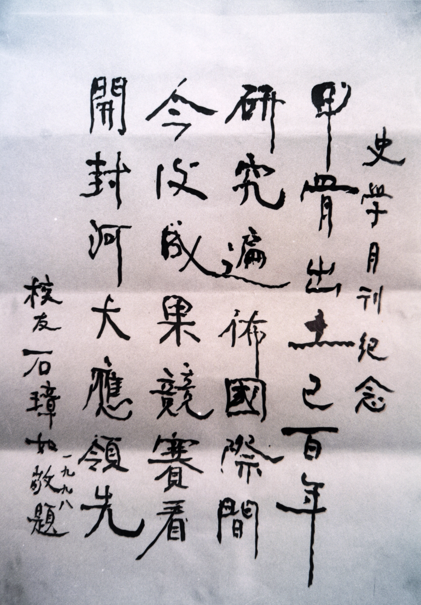 史學月刊紀念
甲骨出土已百年
研究遍佈國際間
今後成果競賽看
開封河大應領先
校友石璋如敬題
一九九八